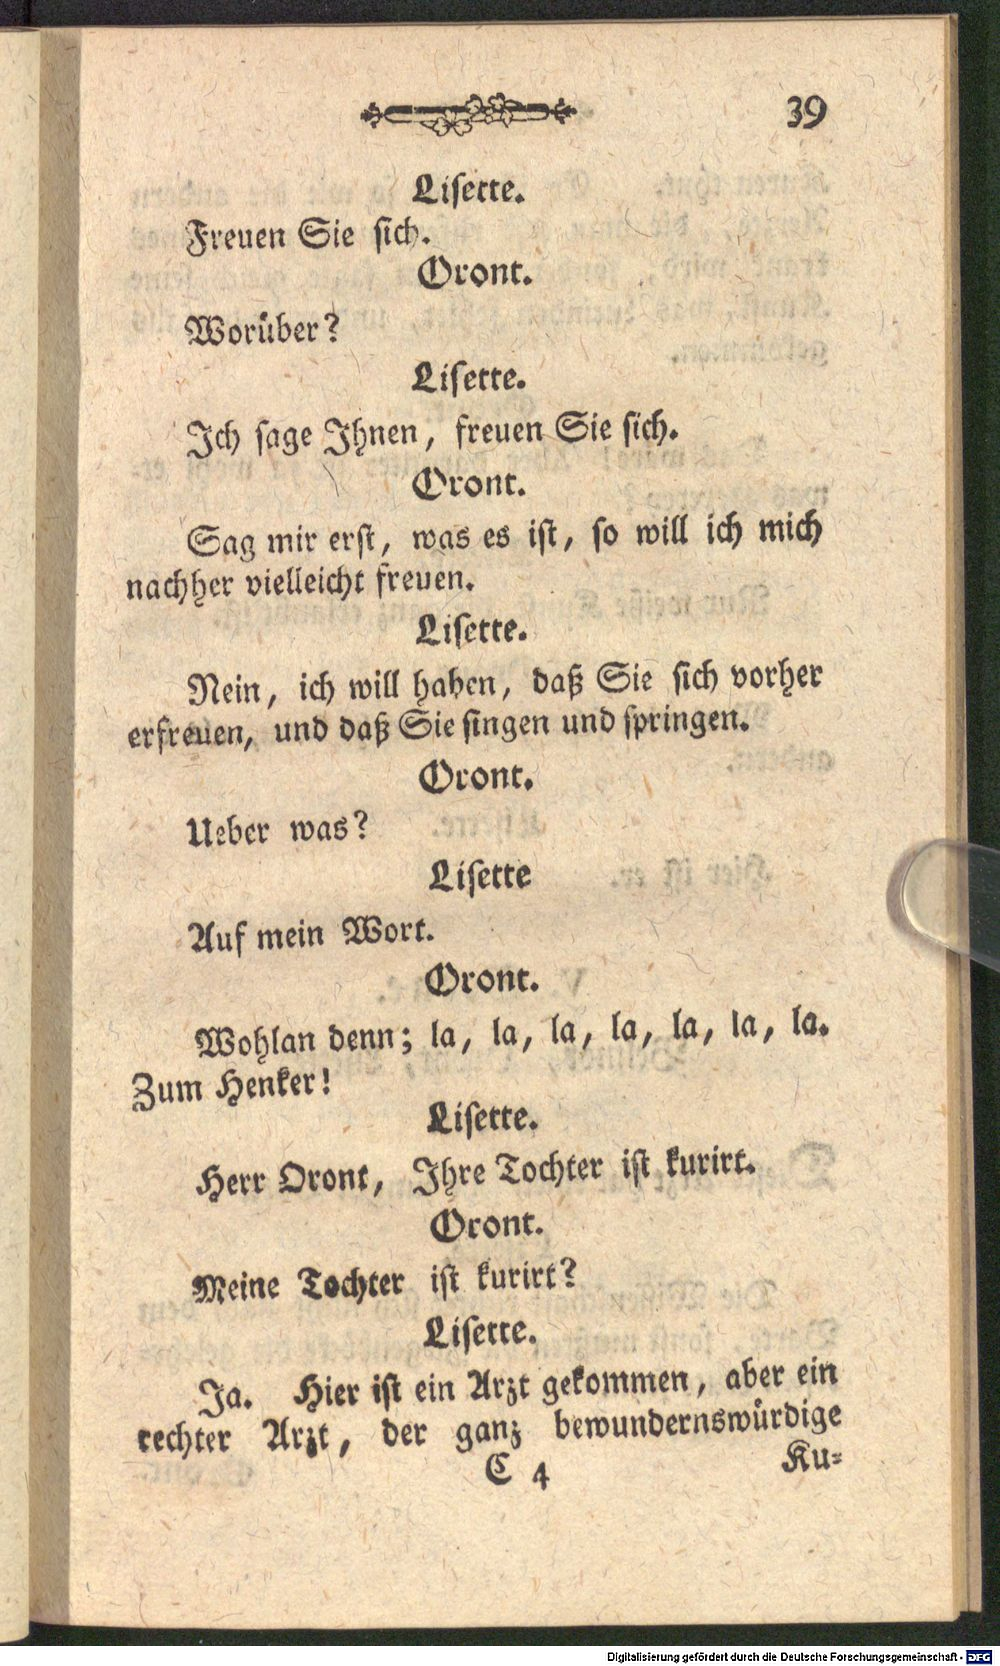 39
Liſette.
Freuen Sie ſich.
Oront.
Worüber?
Liſette.
Ich ſage Ihnen, freuen Sie ſich.
Oront.
Sag mir erſt, was es iſt, ſo will ich mich
nachher vielleicht freuen.
Liſette.
Nein, ich will haben, daß Sie ſich vorher
erfreuen, und daß Sie ſingen und ſpringen.
Oront.
Ueber was?
Liſette
Auf mein Wort.
Oront.
Wohlan denn; la, la, la, la, la, la, la.
Zum Henker!
Liſette.
Herr Oront, Ihre Tochter iſt kurirt.
Oront.
Meine Tochter iſt kurirt?
Liſette.
Ja. Hier iſt ein Arzt gekommen, aber ein
rechter Arzt, der ganz bewundernswürdige
C 4 Ku-
Digitalisierung gefördert durch die Deutsche Forschungsgemeinschaft - DFG